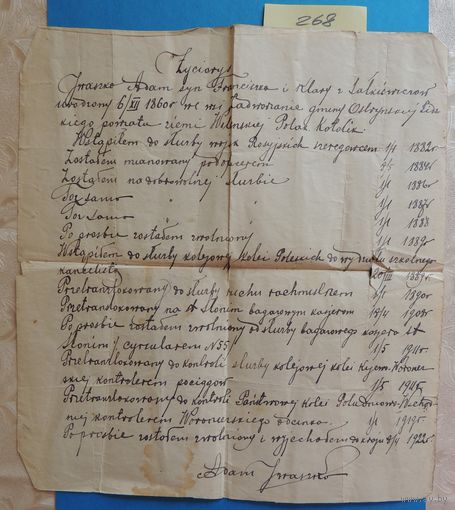 268
Życiorys
Iwaszko Adam syn Franciszka i Klary z Salkiewiczów
urodzony 6/XII 1860r we wsi gminy Ostryńskiej Lidz
kiego powiatu ziemi Wileńskiej Polak Katolik.
Wstąpiłem do służby wojsk Rosyjskich szeregowcem 1/1 1882r
Zostałem mianowany podoficerem 1884r
Zostałem na dobrowolnej służbie 1/1 1886r
Toż samo " " 1/1 1887r
Toż samo " " 1/1 1888
Po prośbie zostałem zwolniony 1/1 1889r
Wstąpiłem do służby kolejowej kolei Poleskich do wydziału szkolnego
kancelistą 1889r.
Przetranslokowany do służby ruchu rachmistrzem 1/1 1890r
Przetranslokowany na st Słonim bagażowym kasjerem 18/4 1908r
Po prośbie zostałem zwolniony od służby bagażowego kasjera st
Słonim cyrcularem N55 1/5 1911r.
Przetranslokowany do kontroli służby kolejowej kolei Kijew. Woroneż
skiej kontrolerem pociągów 1/5 1915r
Przetranslokowany do kontroli Państwowej kolei Południowo-Wschod
niej kontrolerem Woroneżskiego odcinka. 1/1 1919r
Po prośbie zostałem zwolniony i wyjechałem do kraju 1922r.
Adam Iwaszko